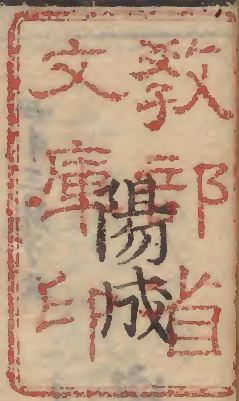 教部省
文庫印
陽成